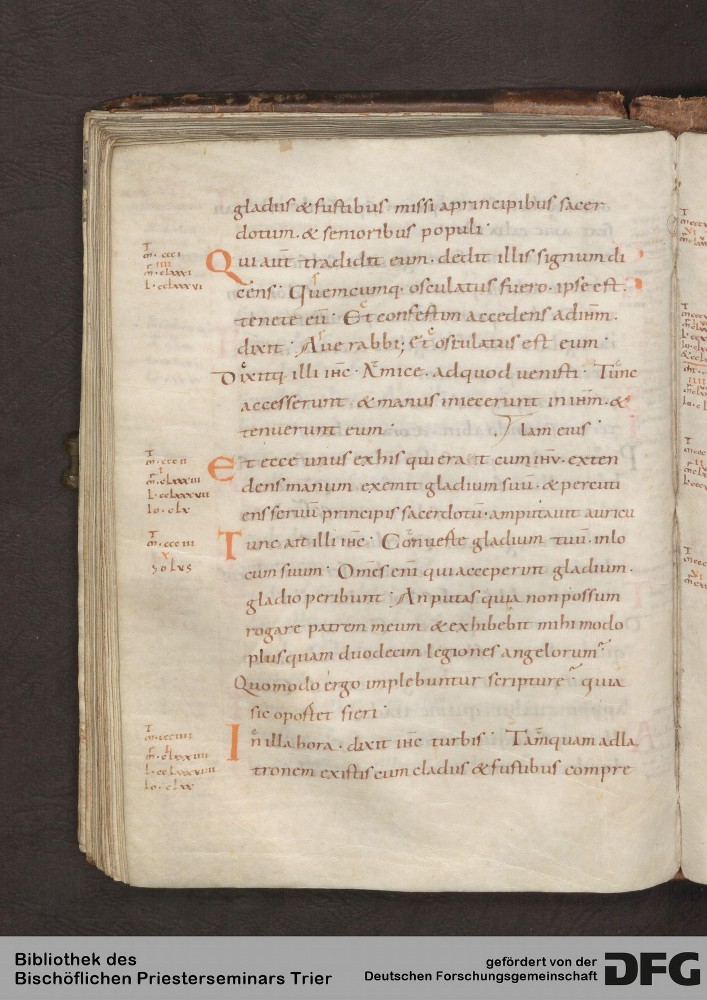 gladiis & fustibus missi a principibus sacer
dotum. & senioribus populi·
Qui aut̄ tradidit eum. dedit illis signum di
cens· Quemcumq· osculatus fuero. ipse est.
tenete eū· Et confestim accedens ad ihm̄.
dixit· Aue rabbi; Et osculatus est eum·
Dixitq· illi ihc̄· Amice. ad quod uenisti· Tunc
accesserunt & manus iniecerunt in ihm̄. &
tenuerunt eum·
lam eius·
Et ecce unus ex his qui erant cum ihu. exten
dens manum exemit gladium suū. & percuti
ens seruū principis sacerdotū· amputauit auricu
Tunc ait illi ihc̄· Conuerte gladium tuū. in lo
cum suum· Om̄s eni qui acceperint gladium.
gladio peribunt· An putas quia non possum
rogare patrem meum & exhibebit mihi modo
plus quam duodecim legiones angelorum·
Quomodo ergo implebuntur scripture· quia
sic oportet fieri·
In illa hora. dixit ihc̄ turbis· Tamquam ad la
tronem existis cum gladiis & fustibus compre
Bibliothek des
Bischöflichen Priesterseminars Trier
gefördert von der
Deutschen Forschungsgemeinschaft
DFG